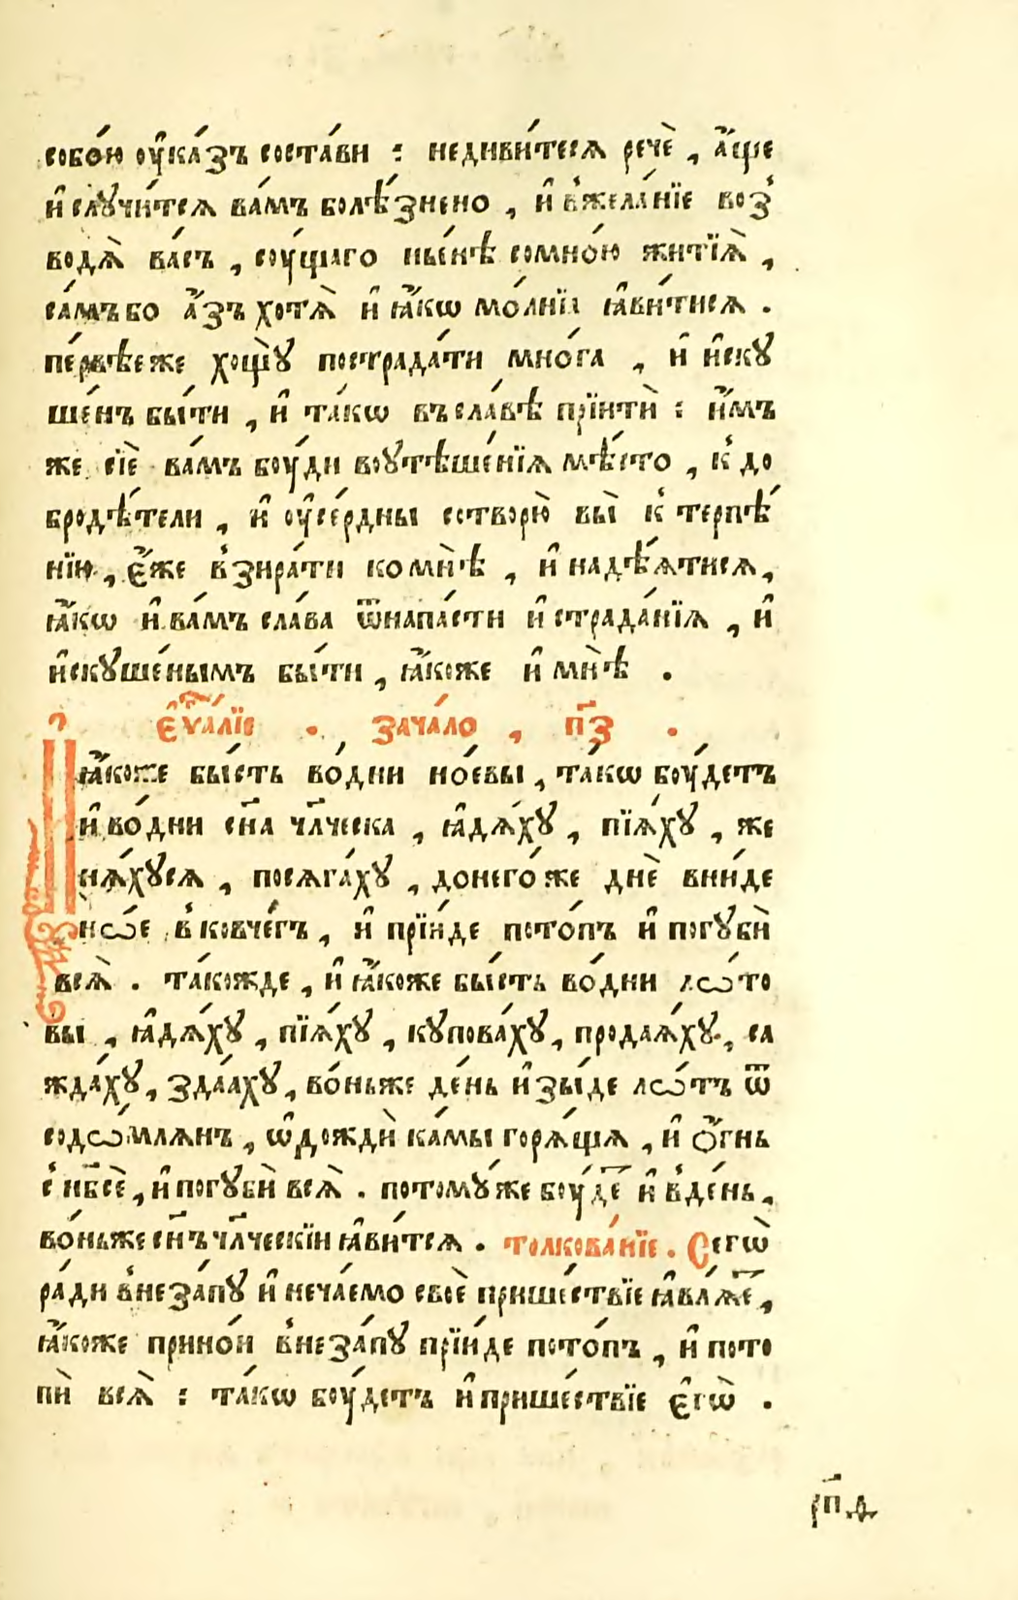 собо́ю оу҆ка́зъ соста́ви : недиви́теся речѐ , а҆́ще
и҆ случи́тся ва́мъ болѣ́знено , и҆ в̾жела́нїе воз̾
водя̀ ва́съ , соу́щаго ны́нѣ сомно́ю житїя̀ ,
са́мъ бо а҆́зъ хотя̀ и҆ ꙗ҆́кѡ мо́лнїи ꙗ҆ви́тися .
пе́рвѣе же хощꙋ̀ пострада́ти мно́га , и҆ и҆скꙋ
ше́нъ бы́ти , и҆ та́кѡ въ сла́вѣ прїитѝ : и҆́мъ
же сїѐ ва́мъ боу́ди воꙋтѣше́нїя мѣ́сто , к̾ до
бродѣ́тели , и҆ оу҆се́рдны сотворю̀ вы̀ к̾ терпѣ́
нїю , є҆́же в̾зира́ти ко мнѣ̀ , и҆ надѣ́ятися ,
ꙗ҆́кѡ и҆ ва́мъ сла́ва ѿнапа́сти и҆ страда́нїя , и҆
и҆скꙋше́нымъ бы́ти , ꙗ҆́коже и҆ мнѣ̀ .
є҆ѵⷢ҇а́лїе . зача́ло , п҃з .
И҆ ꙗ҆́коже бы́сть во́дни но́евы , та́кѡ боу́детъ
и҆ во́дни сн҃а чл҃ческа , ꙗ҆дя́хꙋ , пїя́хꙋ , же
ня́хꙋся , посяга́хꙋ , донего́же днѐ вни́де
но́ѡе в̾ ковче́гъ , и҆ прїи́де пото́пъ и҆ погꙋбѝ
вся̀ . та́кожде , и҆ ꙗ҆́коже бы́сть во́дни лѡ́то
вы , ꙗ҆дя́хꙋ , пїя́хꙋ , кꙋпова́хꙋ , продая́хꙋ , са
жда́хꙋ , зда́ахꙋ , во́ньже де́нь и҆зы́де лѡ́тъ ѿ
содѡ́млянъ , ѡ҆дождѝ ка́мы горя́щїя , и҆ ѻ҆́гнь
с̾ нб҃сѐ , и҆ погꙋбѝ вся̀ . потомꙋ́же боу́деⷮ и҆ в̾де́нь ,
во́ньже сн҃ъ чл҃ческїи ꙗ҆ви́тся . толкова́нїе . Сегѡ̀
ра́ди в̾неза́пꙋ и҆ неча́емо своѐ прише́ствїе ꙗ҆вля́еⷮ ,
ꙗ҆́коже прино́и в̾неза́пꙋ прїи́де пото́пъ , и҆ пото
пѝ вся̀ : та́кѡ боу́детъ и҆ прише́ствїе є҆гѡ̀ .
рп҃д